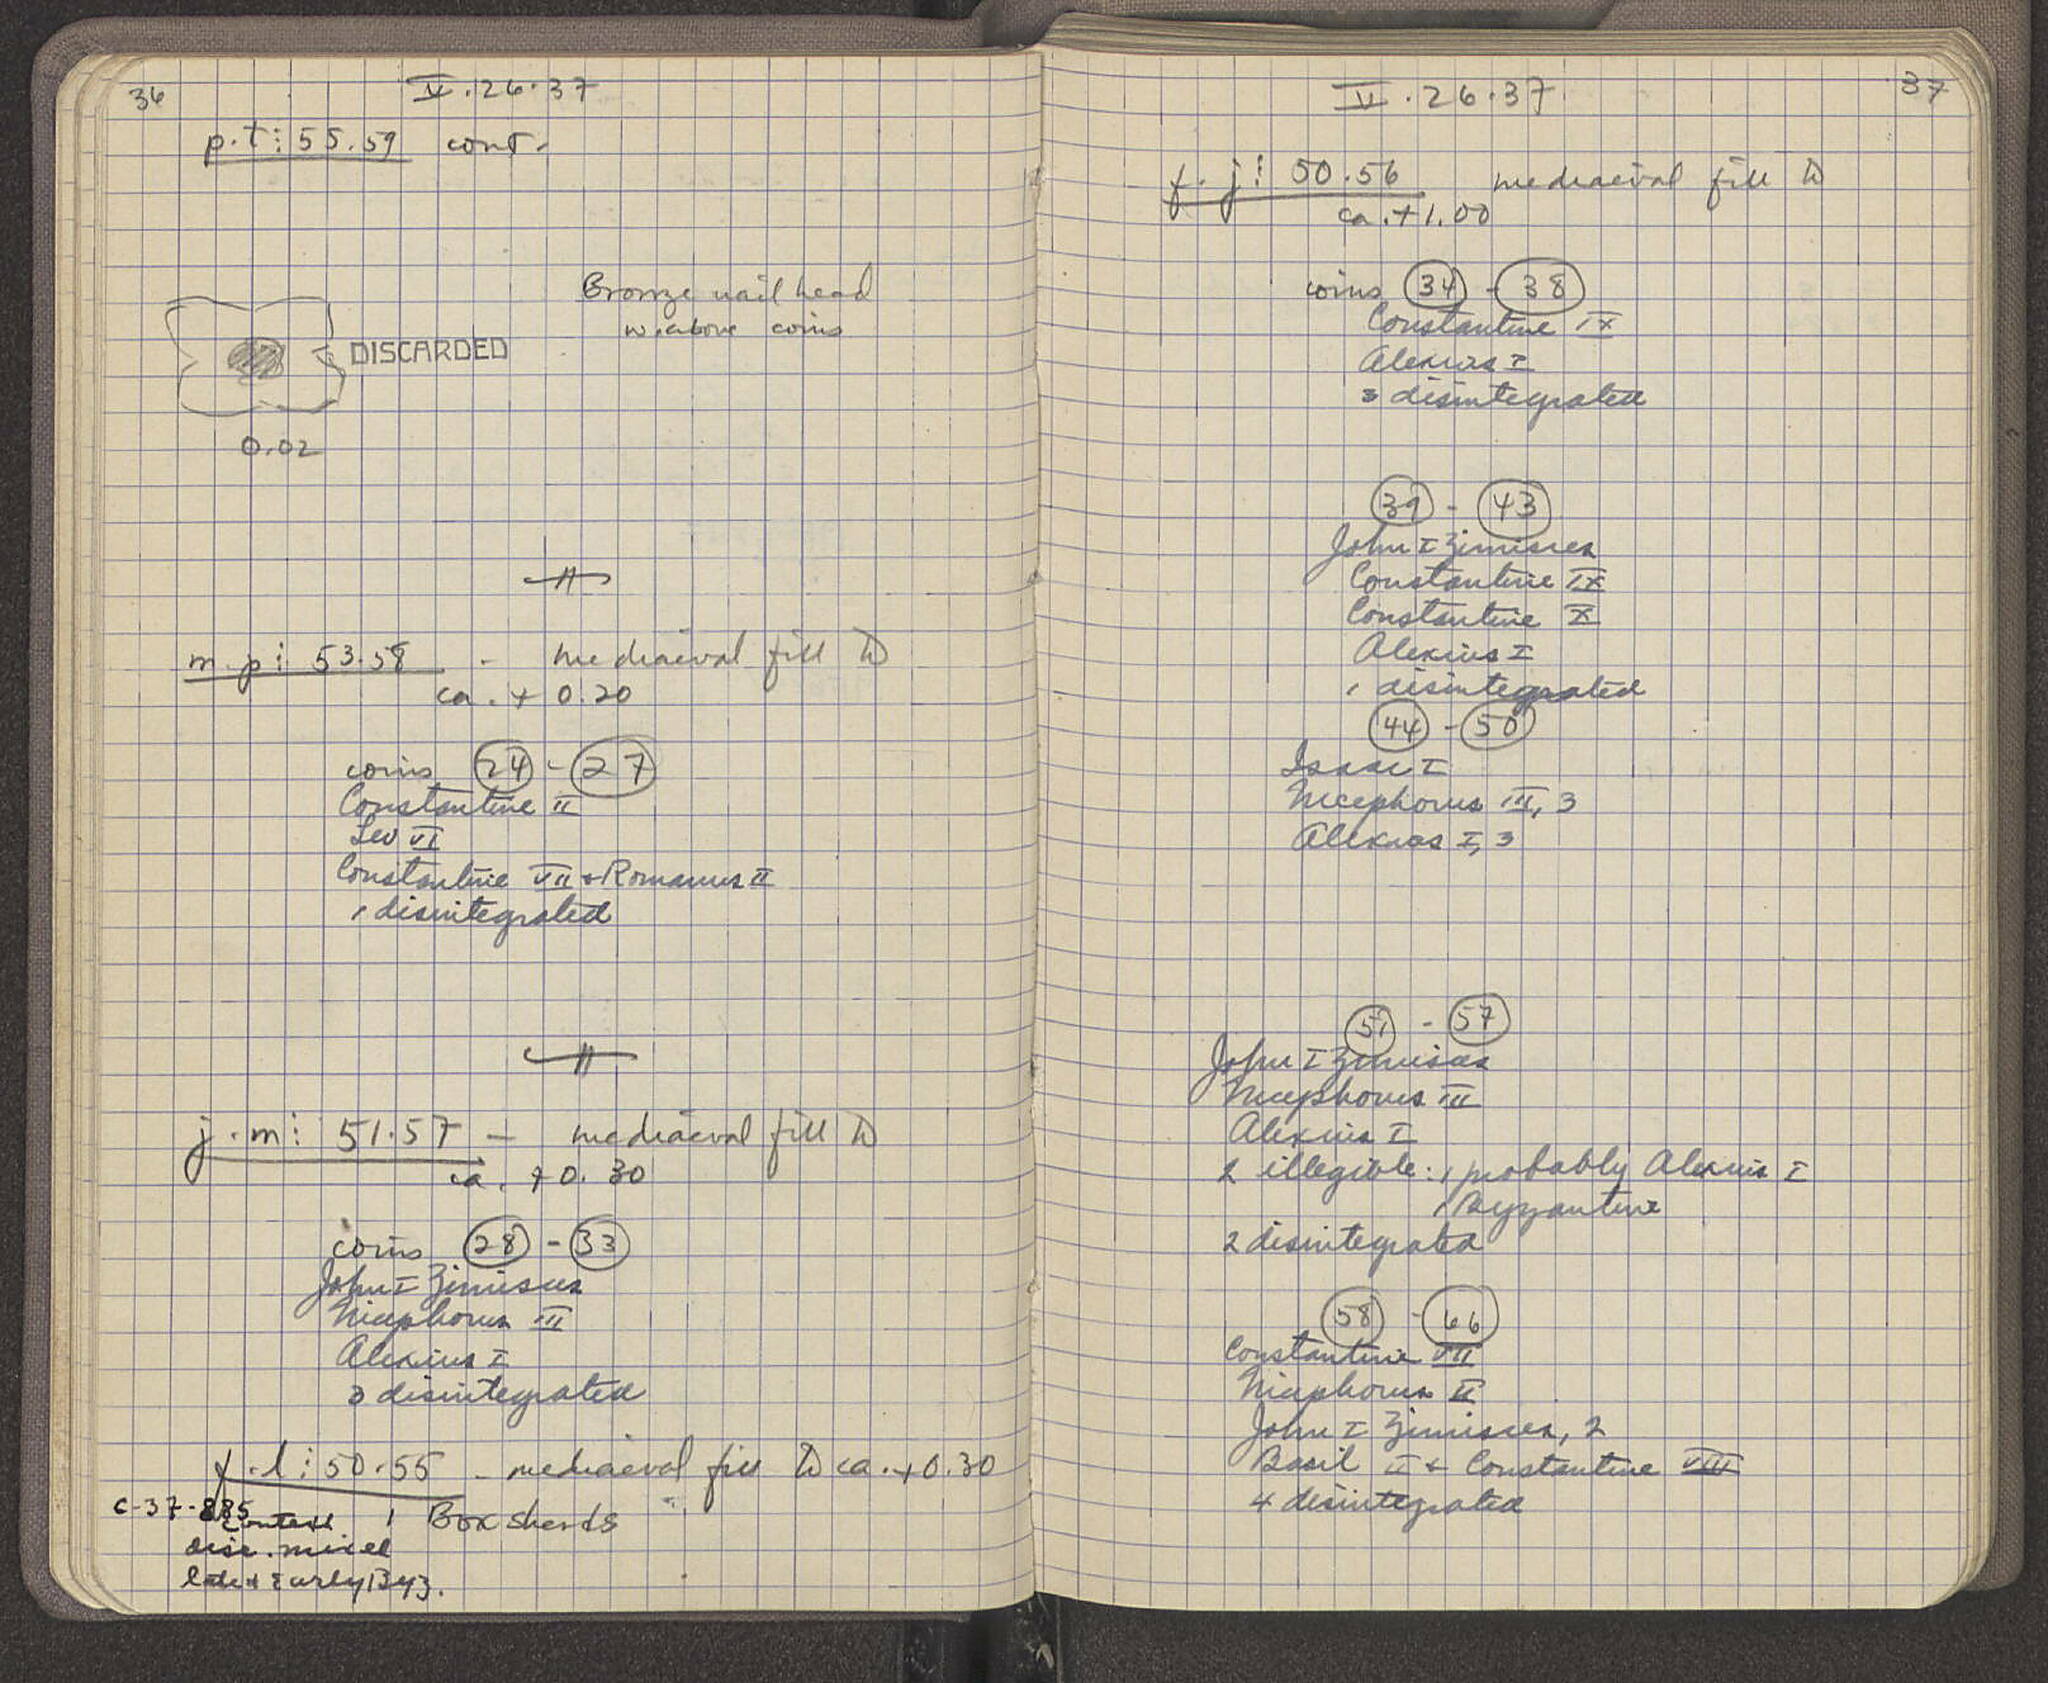 36
V.26.37
p.t: 55.59 cont.
Bronze nail head
w. above coins
DISCARDED
0.02
m.p: 53.58 - mediaeval fill
ca. + 0.20
coins 24 - 27
Constantine II
Leo VI
Constantine VII + Romanus II
1 disintegrated
j.m: 51.57 - mediaeval fill
ca. + 0.30
coins 28 - 33
John I Zimisces
Nicephorus III
Alexius I
3 disintegrated
f.l: 50.55 - mediaeval fill ca. + 0.30
C-37-885
context 1 Box sherds
disc. miscel
late + Early Byz.
37
V.26.37
f.j: 50.56 mediaeval fill
ca. +1.00
coins 34 - 38
Constantine IX
Alexius I
3 disintegrated
39 - 43
John I Zimisces
Constantine IX
Constantine X
Alexius I
1 disintegrated
44 - 50
Isaac I
Nicephorus III, 3
Alexius I, 3
51 - 57
John I Zimisces
Nicephorus III
Alexius I
2 illegible: 1 probably Alexius I
1 Byzantine
2 disintegrated
58 - 66
Constantine VII
Nicephorus II
John I Zimisces, 2
Basil II + Constantine VIII
4 disintegrated